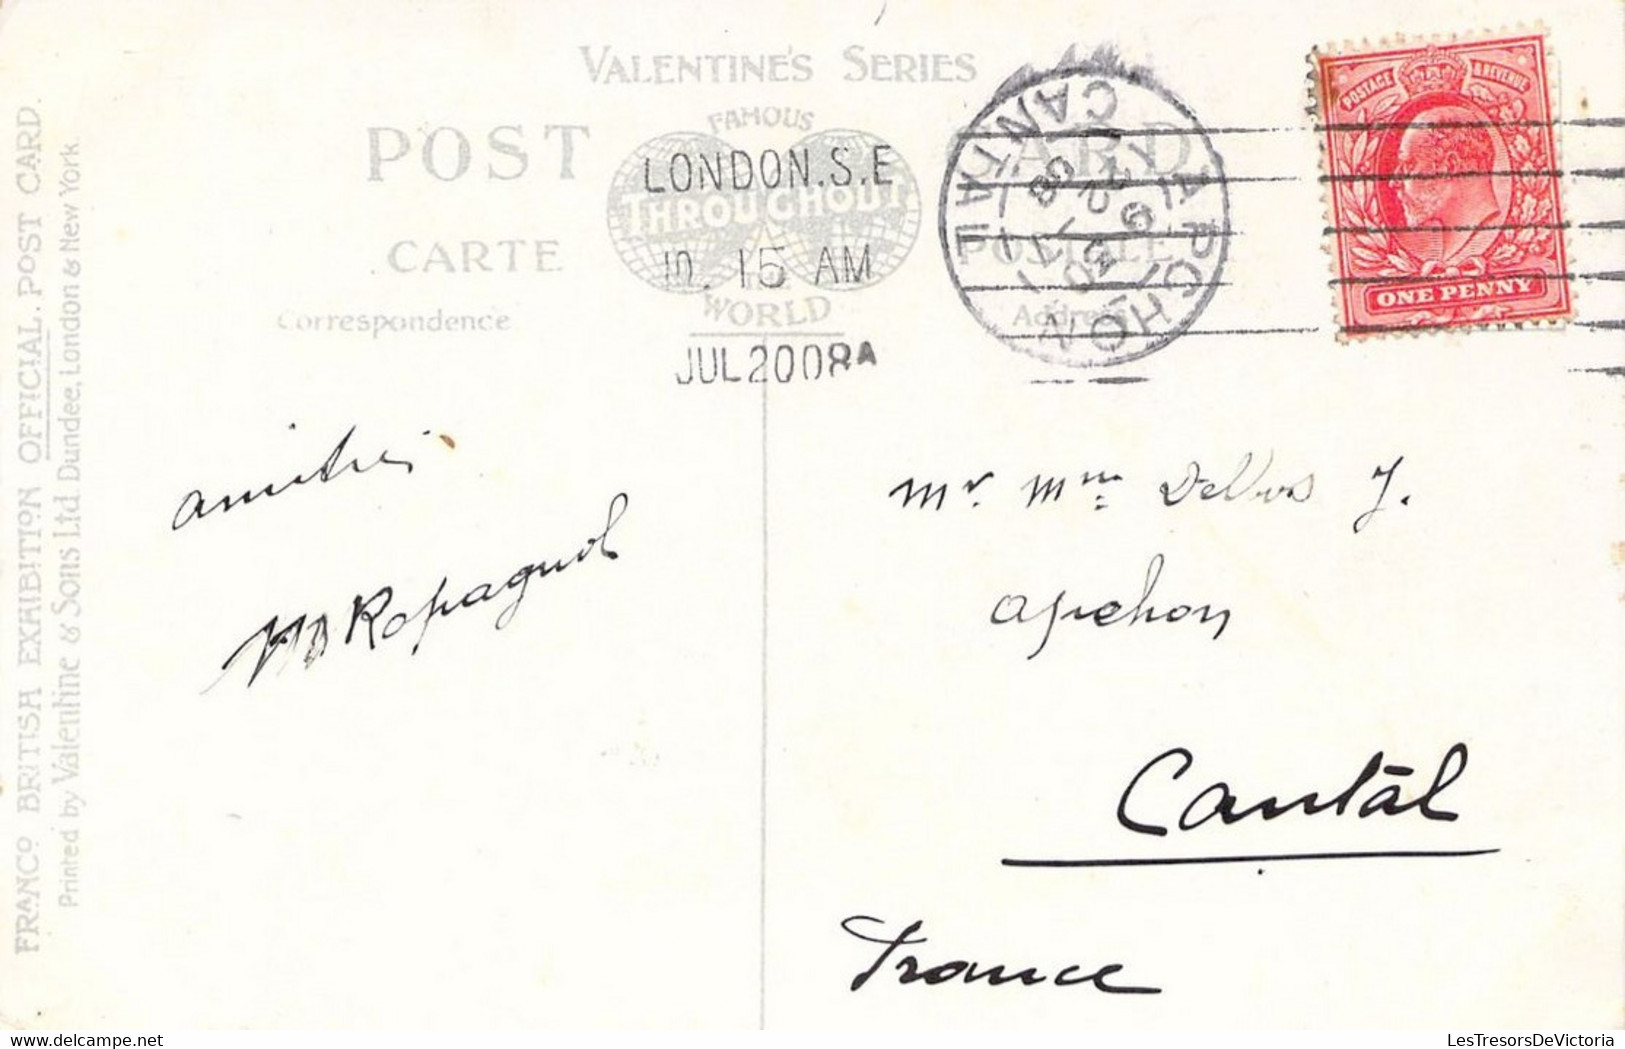 VALENTINE'S SERIES
POST CARD
FAMOUS
THROUGHOUT
THE
WORLD
CARTE POSTALE
Correspondence
Address
LONDON.S.E
10. 15 AM
JUL 20 08 A
APCHON
CANTAL
POSTAGE & REVENUE
ONE PENNY
FRANCO BRITISH EXHIBITION OFFICIAL POST CARD.
Printed by Valentine & Sons Ltd Dundee, London & New York.
amitiés
M Ropagnol
Mr. Mme Delbos J.
apchon
Cantal
France
LesTresorsDeVictoria
https://www.delcampe.net